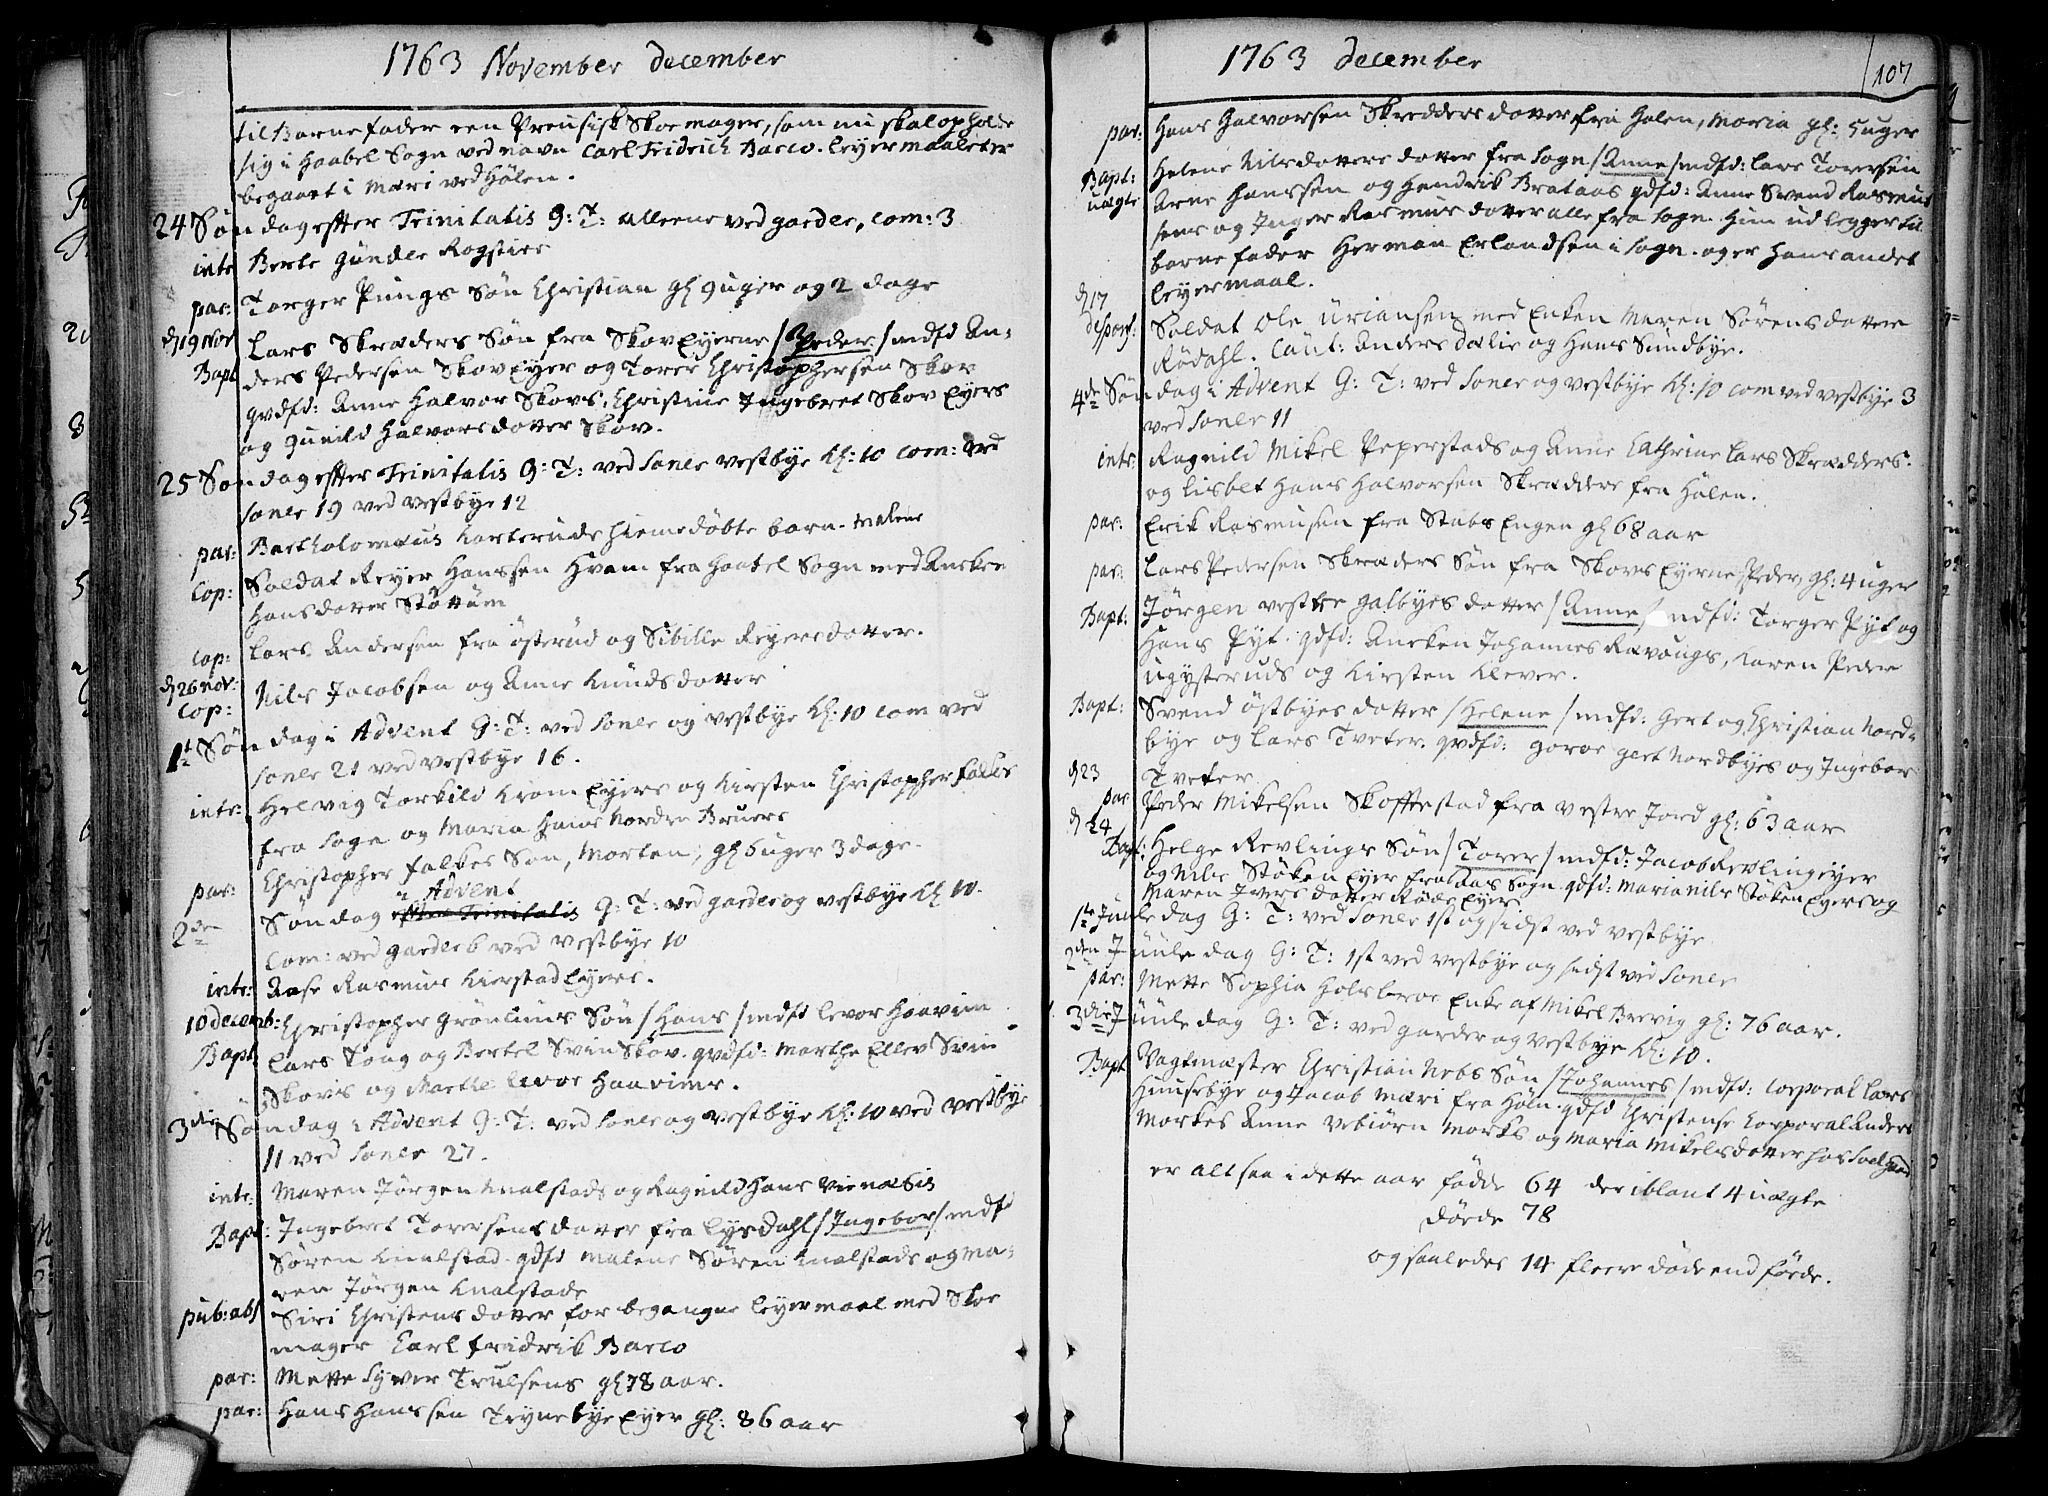 1763 November December
til Barnefader een Preusisk Skoemager, som nu skal opholde
sig i Haabel Sogn ved navn Carl Fridrich Barco. Leyermaalet er
begaaet i Mæri ved Hølen.
24 Søndag effter Trinitatis G: T: alleene ved Garder, Com: 3
intr. Berte Gunder Rogstier
par: Torger Pungs Søn Christian gl 9 uger og 2 dage
d 19 Nov Lars Skræders Søn fra Skov Eyerne /Peder/ mdfd An-
Bapt ders Pedersen Skov Eyer og Torer Christophersen Skov
qvdfd: Anne Halvor Skovs, Christine Ingebret Skov Eyers
og Gunild Halvorsdotter Skov.
25 Søndag effter Trinitatis G: T: ved Soner Vestbye Kl: 10 Com: ved
Soner 19 ved Vestbye 12
par: Bartholomæus Korteruds hiemedøbte barn. Malene
Cop: Soldat Reyer Hanssen Hvam fra Haabel Sogn med Aneken
Hansdotter Støttum
Cop: Lars Andersen fra Østerud og Sibille Reyersdotter.
d 26 Nov: Nils Jacobsen og Anne Knudsdotter
Cop:
1te Søndag i Advent G: T: ved Soner og Vestbye Kl: 10 Com ved
Soner 21 ved Vestbye 16.
intr: Helvig Torkild Krom Eyers og Kirsten Christopher Falkes
fra Sogn og Maria Hans Nordre Bruers
par: Christopher Falkes Søn, Morten, gl 6 uger 3 dage.
i Advent
2den Søndag effter Trinitatis G: T: ved Garder og Vestbye Kl 10.
Com: ved Garder 6 ved Vestbye 10
intr: Aase Rasmus Kierstad Eyers.
10 decemb: Christopher Grønlunds Søn /Hans/ mdfd Levor Haavim
Bapt Lars Tong og Bertel Svinskov. qvdfd: Marthe Ellev Svin
Skovs og Marthe Levor Haavimr.
3die Søndag i Advent G: T: ved Soner og Vestbye Kl: 10 ved Vestbye
11 ved Soner 27.
intr. Maren Jørgen Knalstads og Ragnild Hans
Bapt: Ingebret Torersens dotter fra Lysdahl /Ingebor/ mdfd
Søren Knalstad. qdfd Malene Søren Knalstads og Ma-
ren Jørgen Knalstads
pub: abs Siri Christensdotter for begangne leyermaal med Skoe
mager Carl Fridrik Barco
par: Mette Syver Trulsens gl 78 aar.
par: Hans Hanssen Trynebye Eyer gl: 86 aar
1763 December
107
par: Hans Halvorsen Skredders dotter fra Hølen, Maria gl: 5 uger
Bapt: Helene Nilsdotters dotter fra Sogn /Anne/ mdfd: Lars Torersen
uægte Arne Hanssen og Hendrik Brataas qdfd: Anne Svend Rasmus
sens og Inger Rasmusdotter alle fra Sogn. Hun udlegger til
barnefader Herman Erlandsen i Sogn. og er hans andet
leyermaal.
d 17
desponf: Soldat Ole Uriansen med Enken Maren Sørensdotter
Rödahl. Caut: Anders Dælie og Hans Sundbye.
4de Søndag i Advent G: T: ved Soner og Vestbye Kl: 10 Com ved Vestbye 3
ved Soner 11
intr: Ragnild Mikel Peperstads og Anne Cathrine Lars Skrædders.
og Lisbet Hans Halvorsen Skrædders fra Hølen.
par: Erik Rasmusen fra Stubs Engen gl 68 aar
par: Lars Pedersen Skræders Søn fra Skovs Eyerne, Peder, gl: 4 uger
Bapt: Jørgen Vestre Galbyes dotter /Anne/ mdfd: Torger Pyt og
Hans Pyt. qdfd: Aneken Johannes Ravougs, Karen Peder
Ugysteruds og Kirsten Klever.
Bapt: Svend Østbyes dotter /Helene/ mdfd: Gert og Christian Nord-
bye og Lars Tveter. qvdfd: Goroe Gert Nordbyes og Ingebor
d 23 Tveter
par Peder Mikelsen Skoffestad fra Vestre Jord gl: 63 aar
d 24
Bapt: Helge Revlings Søn /Torer/ mdfd: Jacob Revling Eyer
og Nils Støken Eyer fra Aas Sogn. qdfd: Maria Nils Støken Eyers og
Maren Iversdotter Røds Eyer
1te Juule dag G: T: ved Soner 1st og sidst ved Vestbye
2den Juule dag G: T: 1st ved Vestbye og sidst ved Soner
par: Mette Sophia Holsbroe Enke af Mikel Brevig gl: 76 aar.
3die Juule dag G: T: ved Garder og Vestbye Kl: 10.
Bapt Vagtmæster Christian Nebs Søn /Johannes/ mdfd: Corporal Lars
Huusebye og Jacob Mæri fra Høln. qdfd Christense Corporal Anders
Morkes Anne Vebiørn Morks og Maria Mikelsdotter hos
er altsaa i dette aar fødde 64 der iblant 4 uægte
Døde 78
og saaledes 14 fleere døde end fødde.